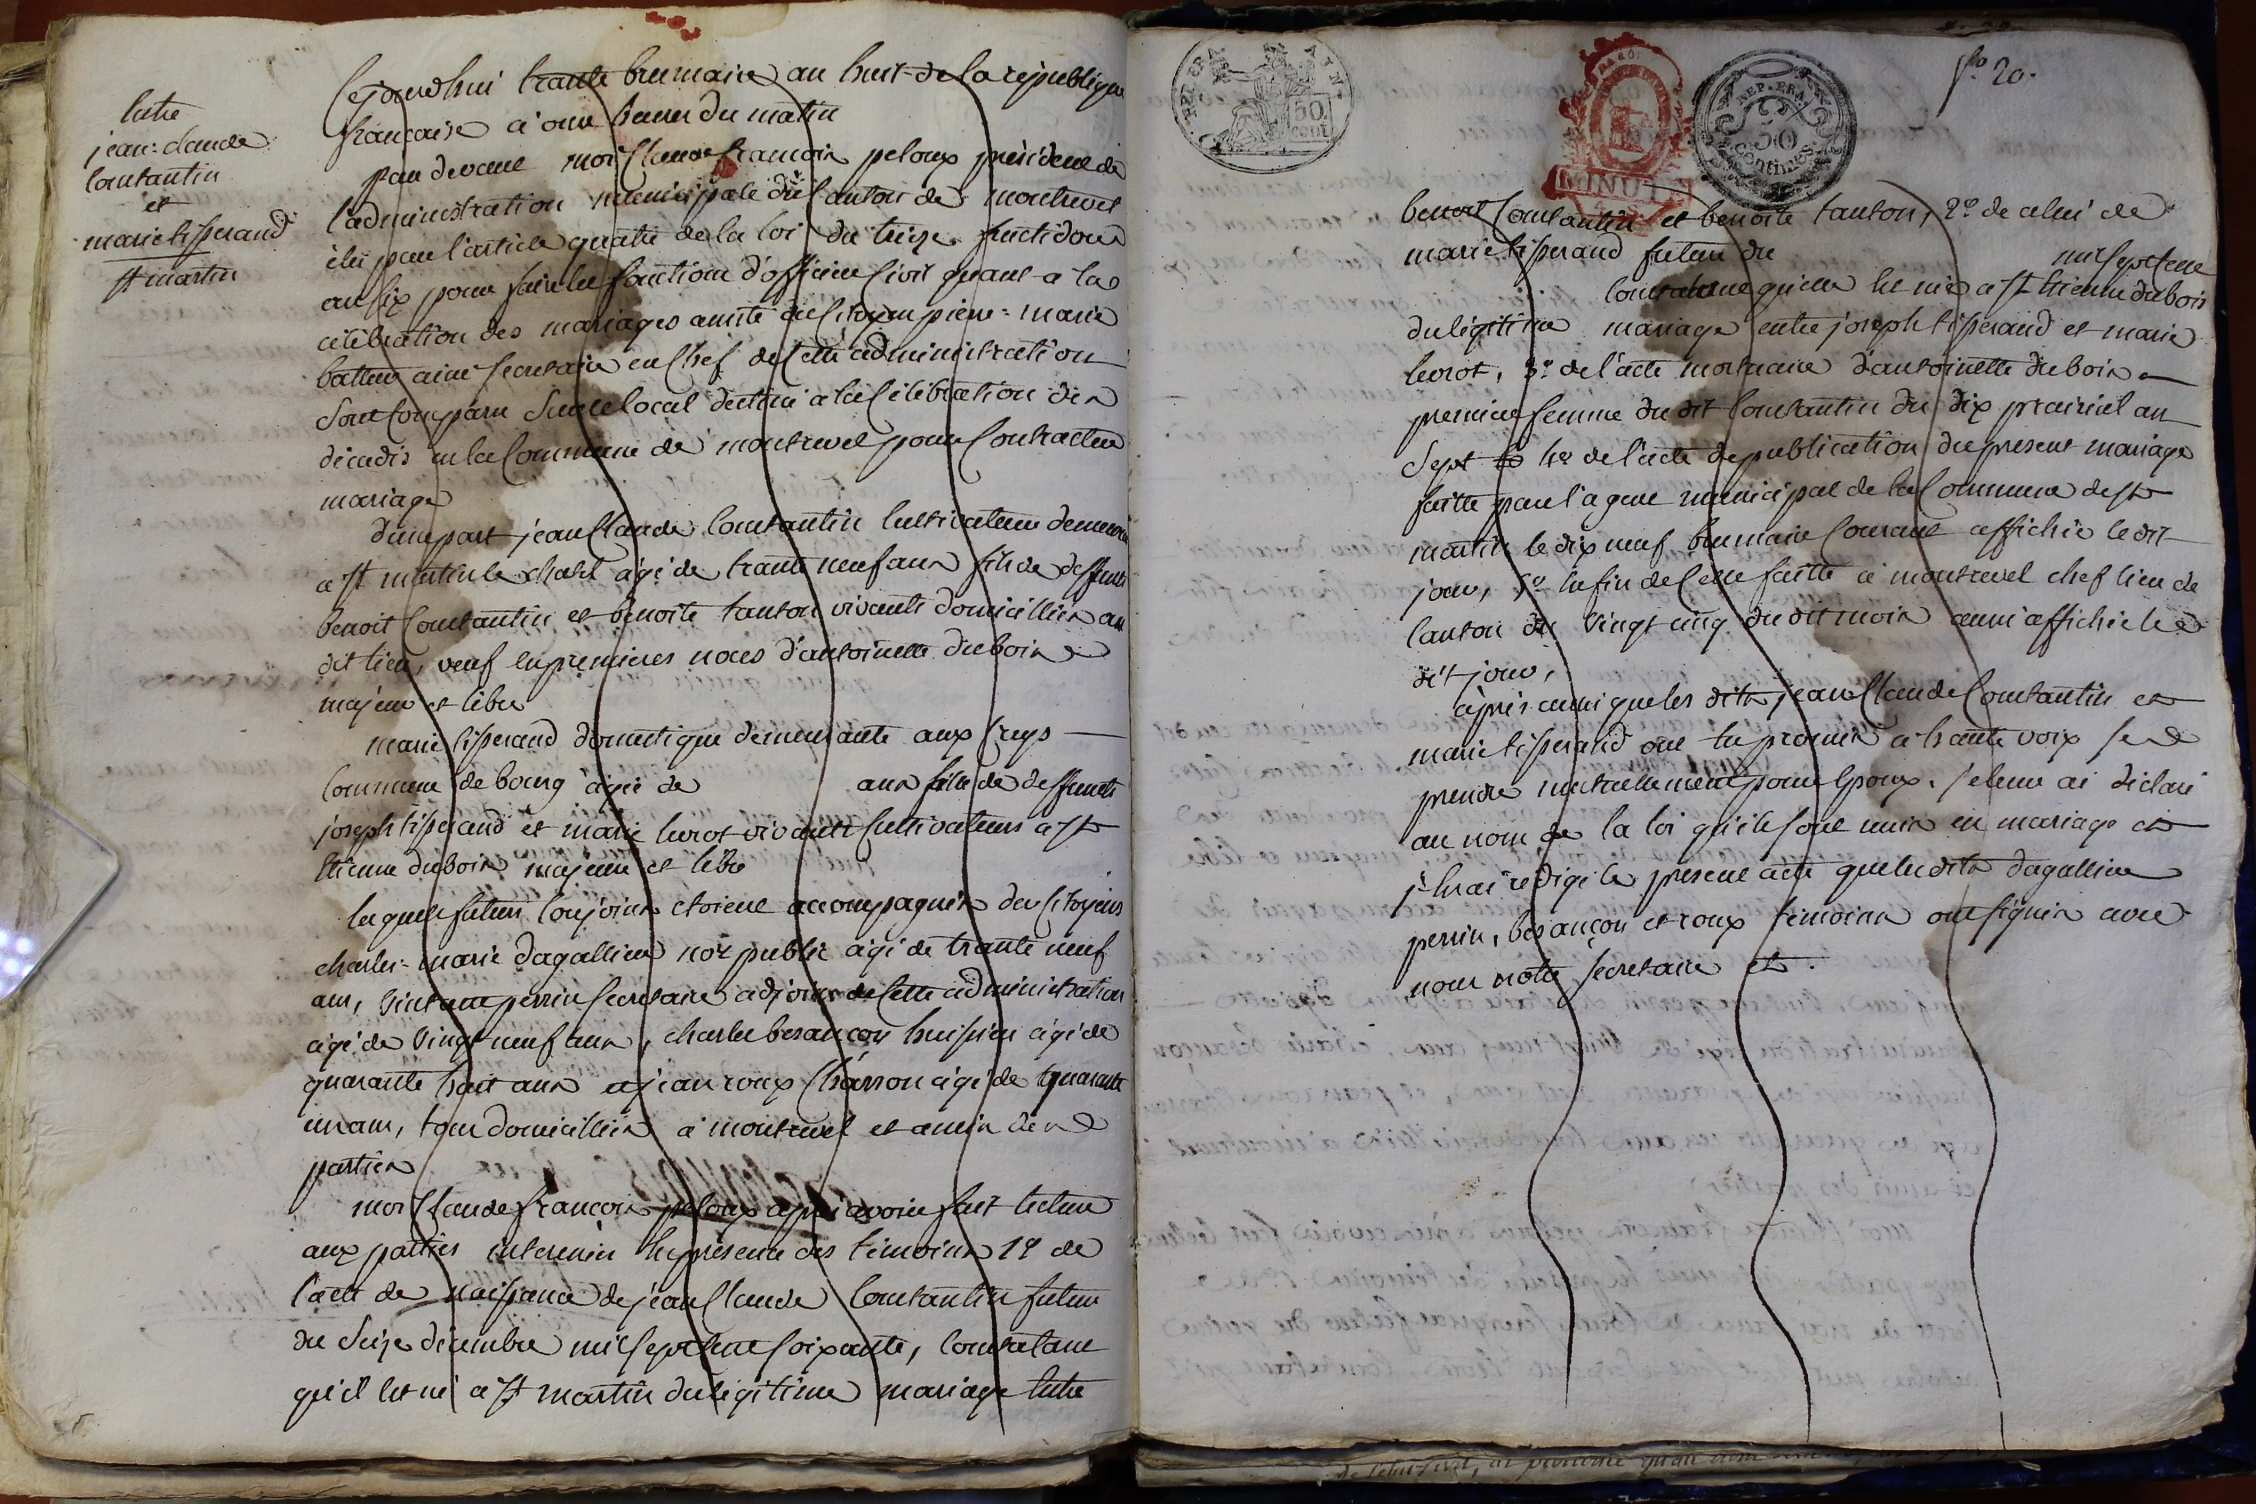 Entre
jean-claude
Constantin
et
marie tisserand
St martin
Cejourdhui trante brumaire an huit de la republique
francaise à onze heures du matin
par devant moi Claude francois peloux président de
l'administration municipale du Canton de montrevel
élu par l'article quatre de la loi du treize fructidor
an six pour faire les fonctions d'officier Civil quant a la
célébration des mariages assisté du Citoyen pierre-marie
ainé secretaire en Chef de Cette administration
Sont Comparu Sur le local destiné a la Célébration des
décadis en la Commune de montrevel pour Contracter
mariage
D'une part jean Claude Constantin Cultivateur demeurant
a St martin le chatel agé de trante neuf ans fils de deffunts
benoit Constantin et benoite tanton vivants domicilliés au
dit lieu, veuf en premieres noces d'antoinette dubois
majeur et libre
marie tisserand domestique demeurante aux Creys
Commune de bourg agée de ans fille de deffunts
joseph tisserand et marie vivants Cultivateurs a St
Etienne dubois majeure et libre
Lesquels futurs Conjoints etoient accompagnés des Citoyens
charles-marie dagallier nore public agé de trante neuf
ans, perrin secretaire adjoint de Cette administration
agé de vingt neuf ans, charles besançon huissier agé de
quarante huit ans et jean roux Charron agé de quarante
un ans, tous domicilliés a montrevel et amis des
parties
moi Claude francois peloux après avoir fait lecture
aux parties en présence des témoins 1º de
l'acte de naissance de jean Claude Constantin futur
du Seize décembre mil sept Cent soixante, Constatant
qu'il est né a St martin du légitime mariage Entre
REP. FRA.
50
CENT.
MINUTE
REP. FRA.
50
Centimes
fo 20.
benoit Constantin et benoite tanton, 2º de celui de
marie tisserand future du mil sept Cent
Constatant qu'elle est née a St Etienne dubois
du légitime mariage entre joseph tisserand et marie
3º de l'acte mortuaire d'antoinette dubois
premiere femme du dit Constantin du dix prairial an
Sept 4º de l'acte de publication du présent mariage
faitte par l'agent municipal de la Commune de St
martin le dix neuf brumaire Courant affichée le dit
jour, 5º Enfin de Celle faitte a montrevel chef lieu de
Canton du vingt cinq du dit mois aussi affichée le
dit jour,
après aussi que les dits jean Claude Constantin et
marie tisserand ont promis à haute voix se
prendre mutuellement pour Epoux. je leur ai déclaré
au nom de la loi qu'ils sont unis en mariage et
j'en ai rédigé le présent acte que les dits dagallier
perrin, besançon et roux témoins ont signés avec
nous notre secretaire et.